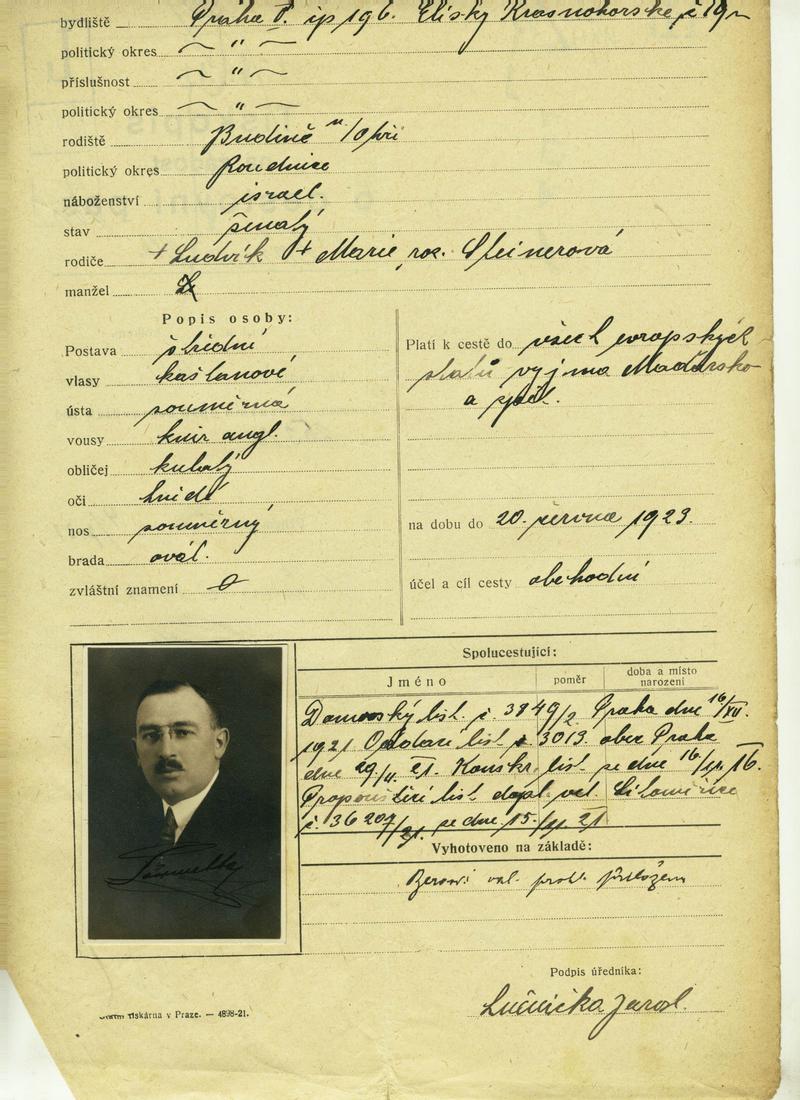 bydliště Praha V. čp 196. Elišky Krasnohorské č 19
politický okres „
příslušnost „
politický okres „
rodiště Budině n/Ohří
politický okres Roudnice
náboženství israel.
stav ženatý
rodiče + Ludvík + Marie, roz. Steinerová
manžel
Popis osoby:
Postava střední
vlasy kaštanové
ústa souměrná
vousy knír angl.
obličej kulatý
oči hnědé
nos souměrný
brada ovál.
zvláštní znamení 0
Platí k cestě do všech evropských
států vyjma Maďarsko
a zpět.
na dobu do 20. června 1923.
účel a cíl cesty obchodní
Spolucestující:
Jméno poměr doba a místo narození
Domovský list. č. 3849/2 Praha dne 16/XII.
1921 Oddací list č 3013 obec Praha
dne 29/11. 21. Konskr. list. ze dne 16/ 16.
Propouštěcí list dopl. vel. Litoměřice
č. 36207/21. ze dne 15. 21
Vyhotoveno na základě:
Berní přiložen
Podpis úředníka:
Jarosl.
tiskárna v Praze. — 4898-21.